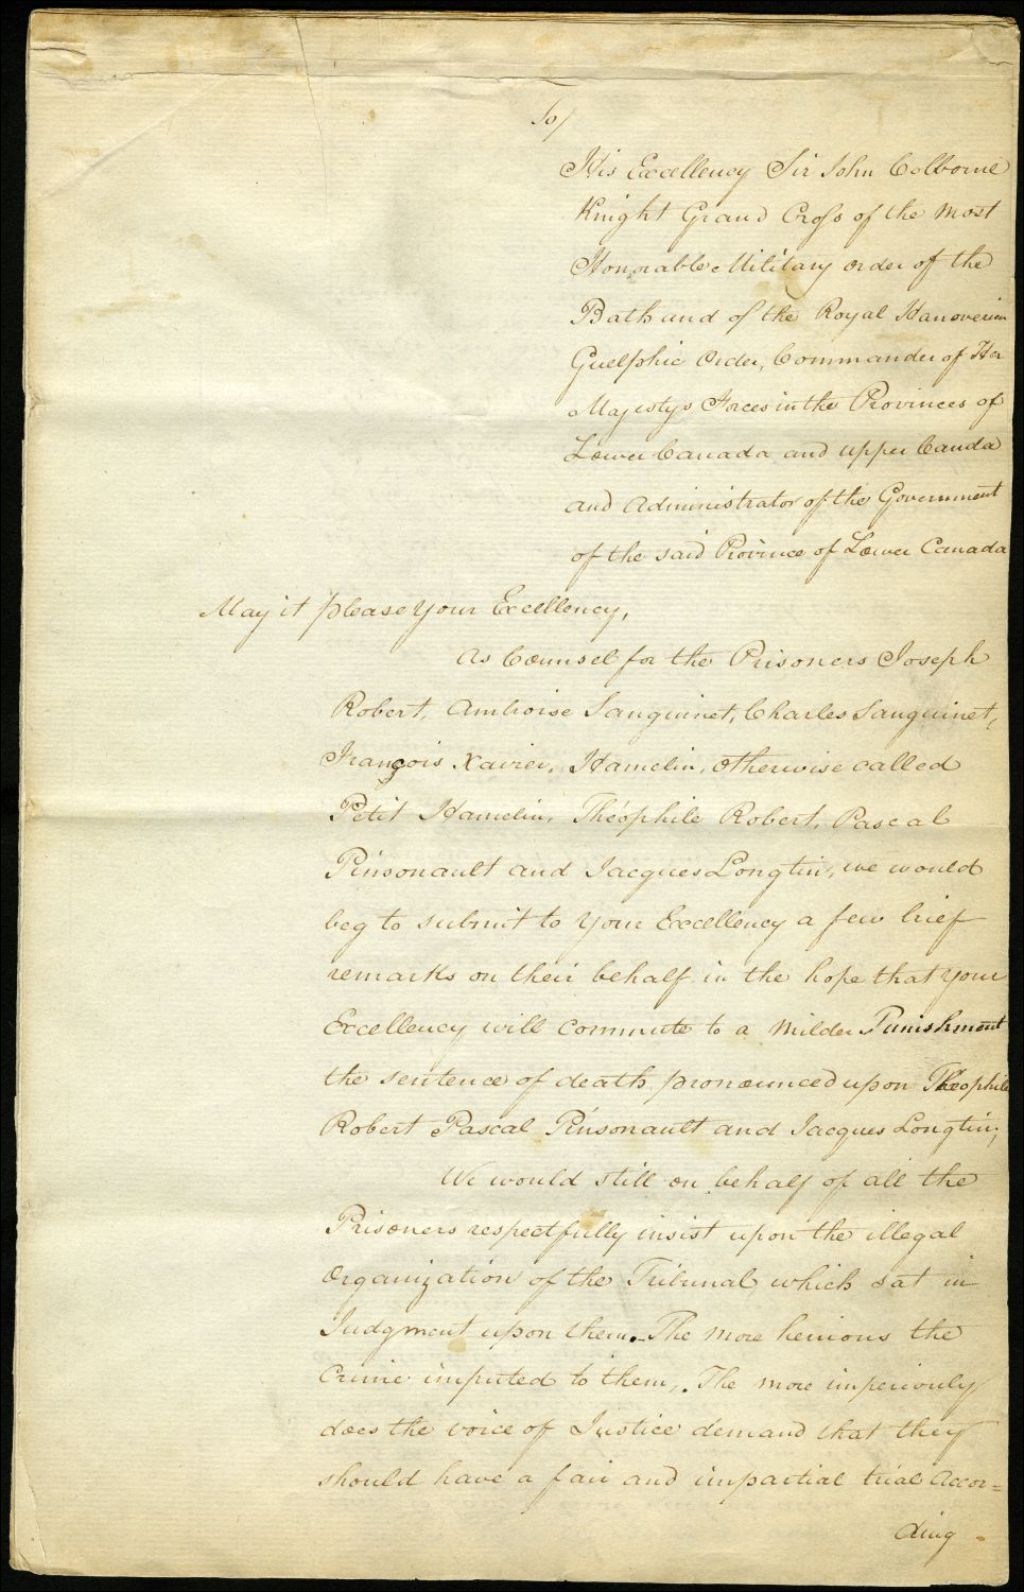 To/
His Excellency Sir John Colborne
Knight Grand Cross of the Most
Honorable Military order of the
Bath and of the Royal Hanoverian
Guelphic Order, Commander of Her
Majestys Forces in the Provinces of
Lower Canada and upper Canda
and Administrator of the Government
of the said Province of Lower Canada
May it please Your Excellency,
As Counsel for the Prisoners Joseph
Robert, Ambroise Sanguinet, Charles Sanguinet,
François Xavier, Hamelin, otherwise called
Petit Hamelin, Théophile Robert, Pascal
Pinsonault and Jacques Longtin, we would
beg to submit to Your Excellency a few brief
remarks on their behalf in the hope that your
Excellency will Commute to a Milder Punishment
the sentence of death pronounced upon Théophile
Robert Pascal Pinsonault and Jacques Longtin;
We would still on behalf of all the
Prisoners respectfully insist upon the illegal
Organization of the Tribunal which sat in
Judgment upon them. The more heinous the
Crime imputed to them, The more imperiously
does the voice of Justice demand that they
should have a fair and impartial trial Accor=
ding